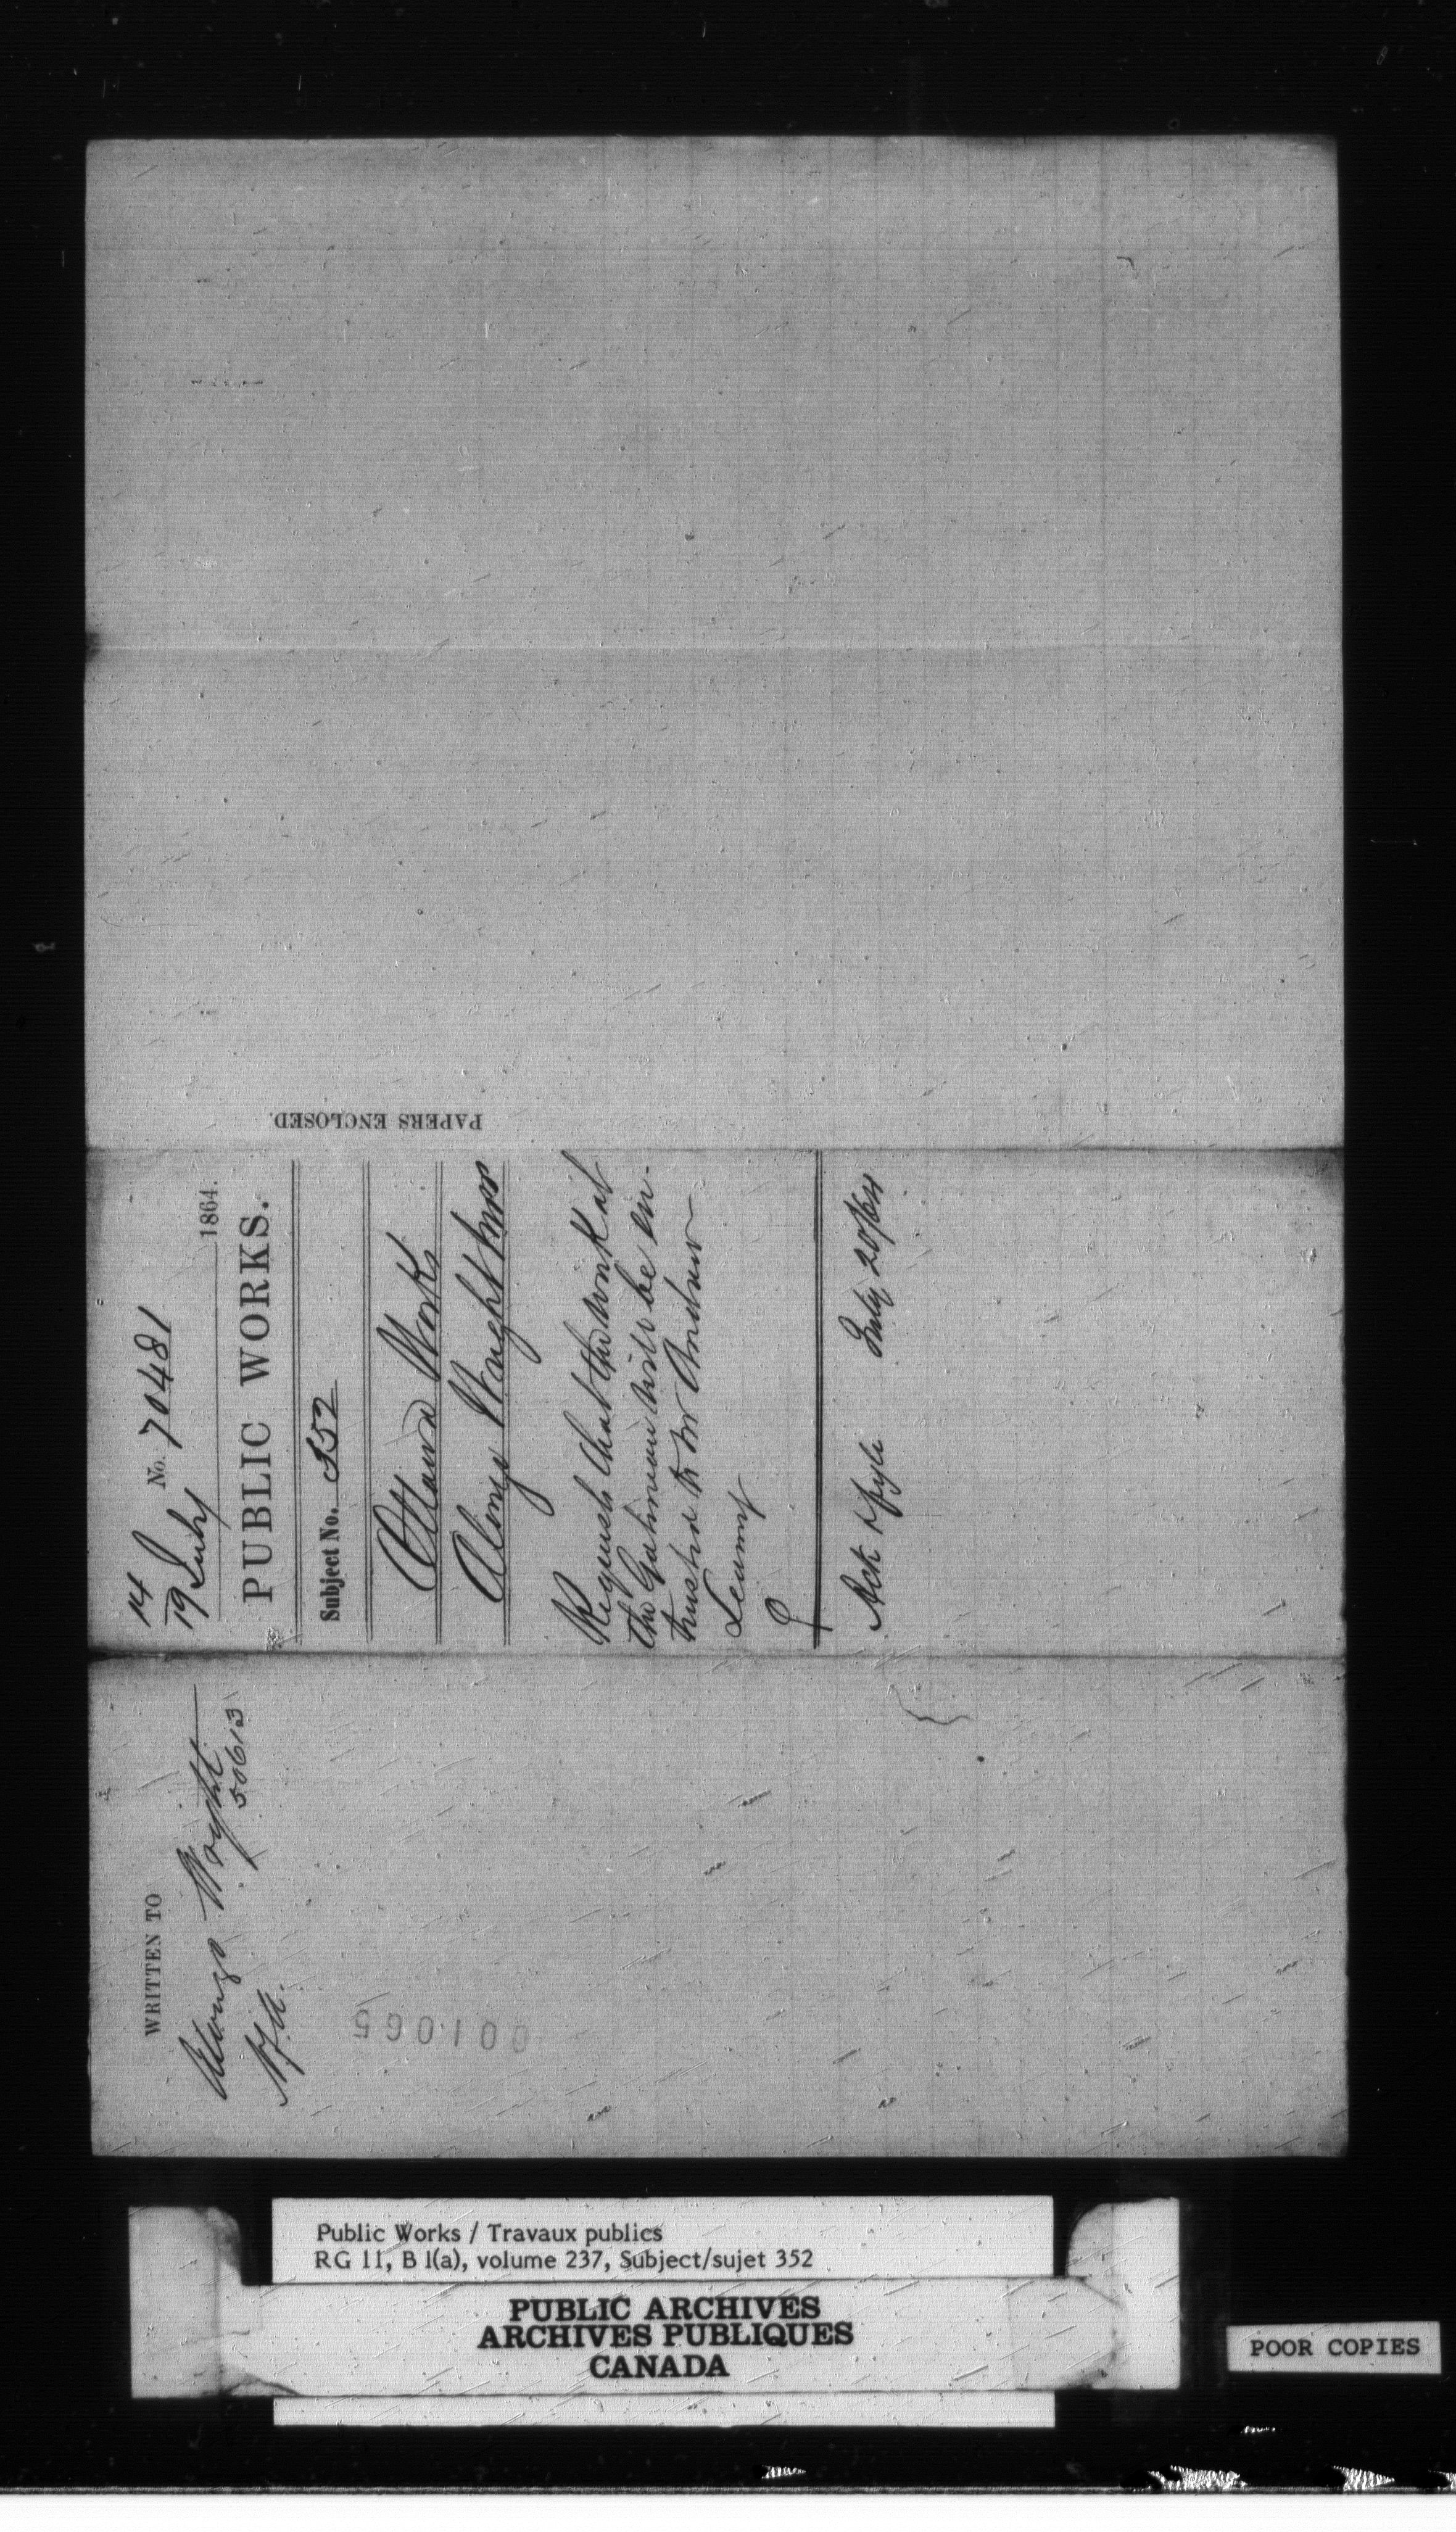 14
No. 70481
19 July 1864.
PUBLIC WORKS.
Subject No. 352
Ottawa Works
Alonzo Wright MPP
Requests that the work at
the Gatineau will be en-
trusted to Mr Andrew
Leamy
Ack July 20/64
PAPERS ENCLOSED.
WRITTEN TO
Alonzo Wright
50613
001065
Public Works / Travaux publics
RG 11, B 1(a), volume 237, Subject/sujet 352
PUBLIC ARCHIVES
ARCHIVES PUBLIQUES
CANADA
POOR COPIES